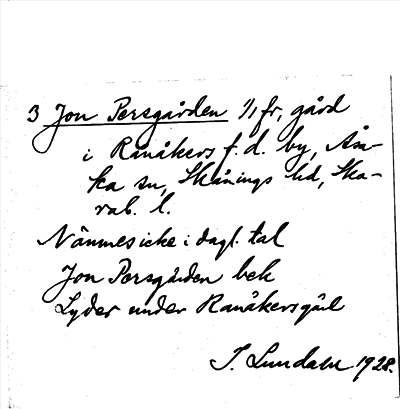 3 Jon Persgården 1/1 fr, gård
i Ranåkers f. d. by, Ån-
ka sn, Skånings hd, Ska-
rab. l.
Nämnes icke i dagl. tal
Jon Persgården bek
Lyder under Ranåkersgål
J. Lundahl 1928.